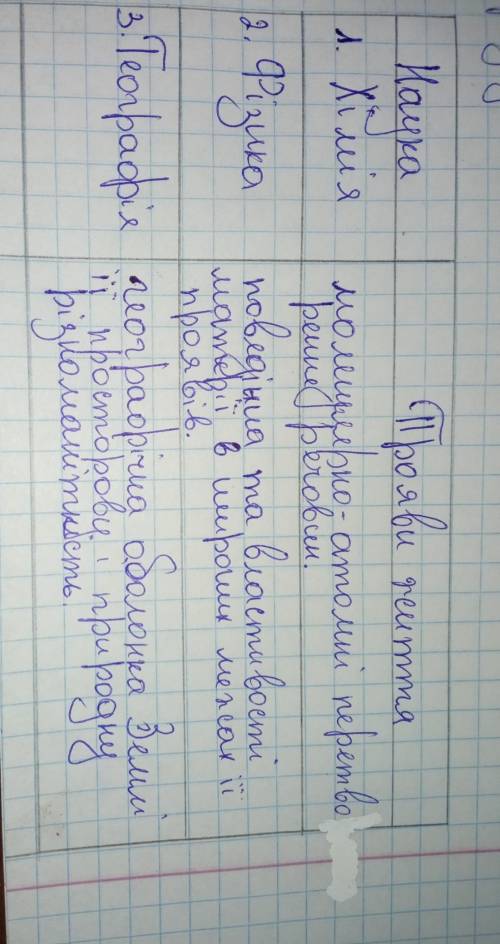 Наука
Прояви життя
1. Хімія
молекулярно-атомні перетво
рення речовин.
2. Фізика
поведінка та властивості
матерії в широких межах її
проявів.
3. Географія
географічна оболонка Землі
її просторову і природну
різноманітність.